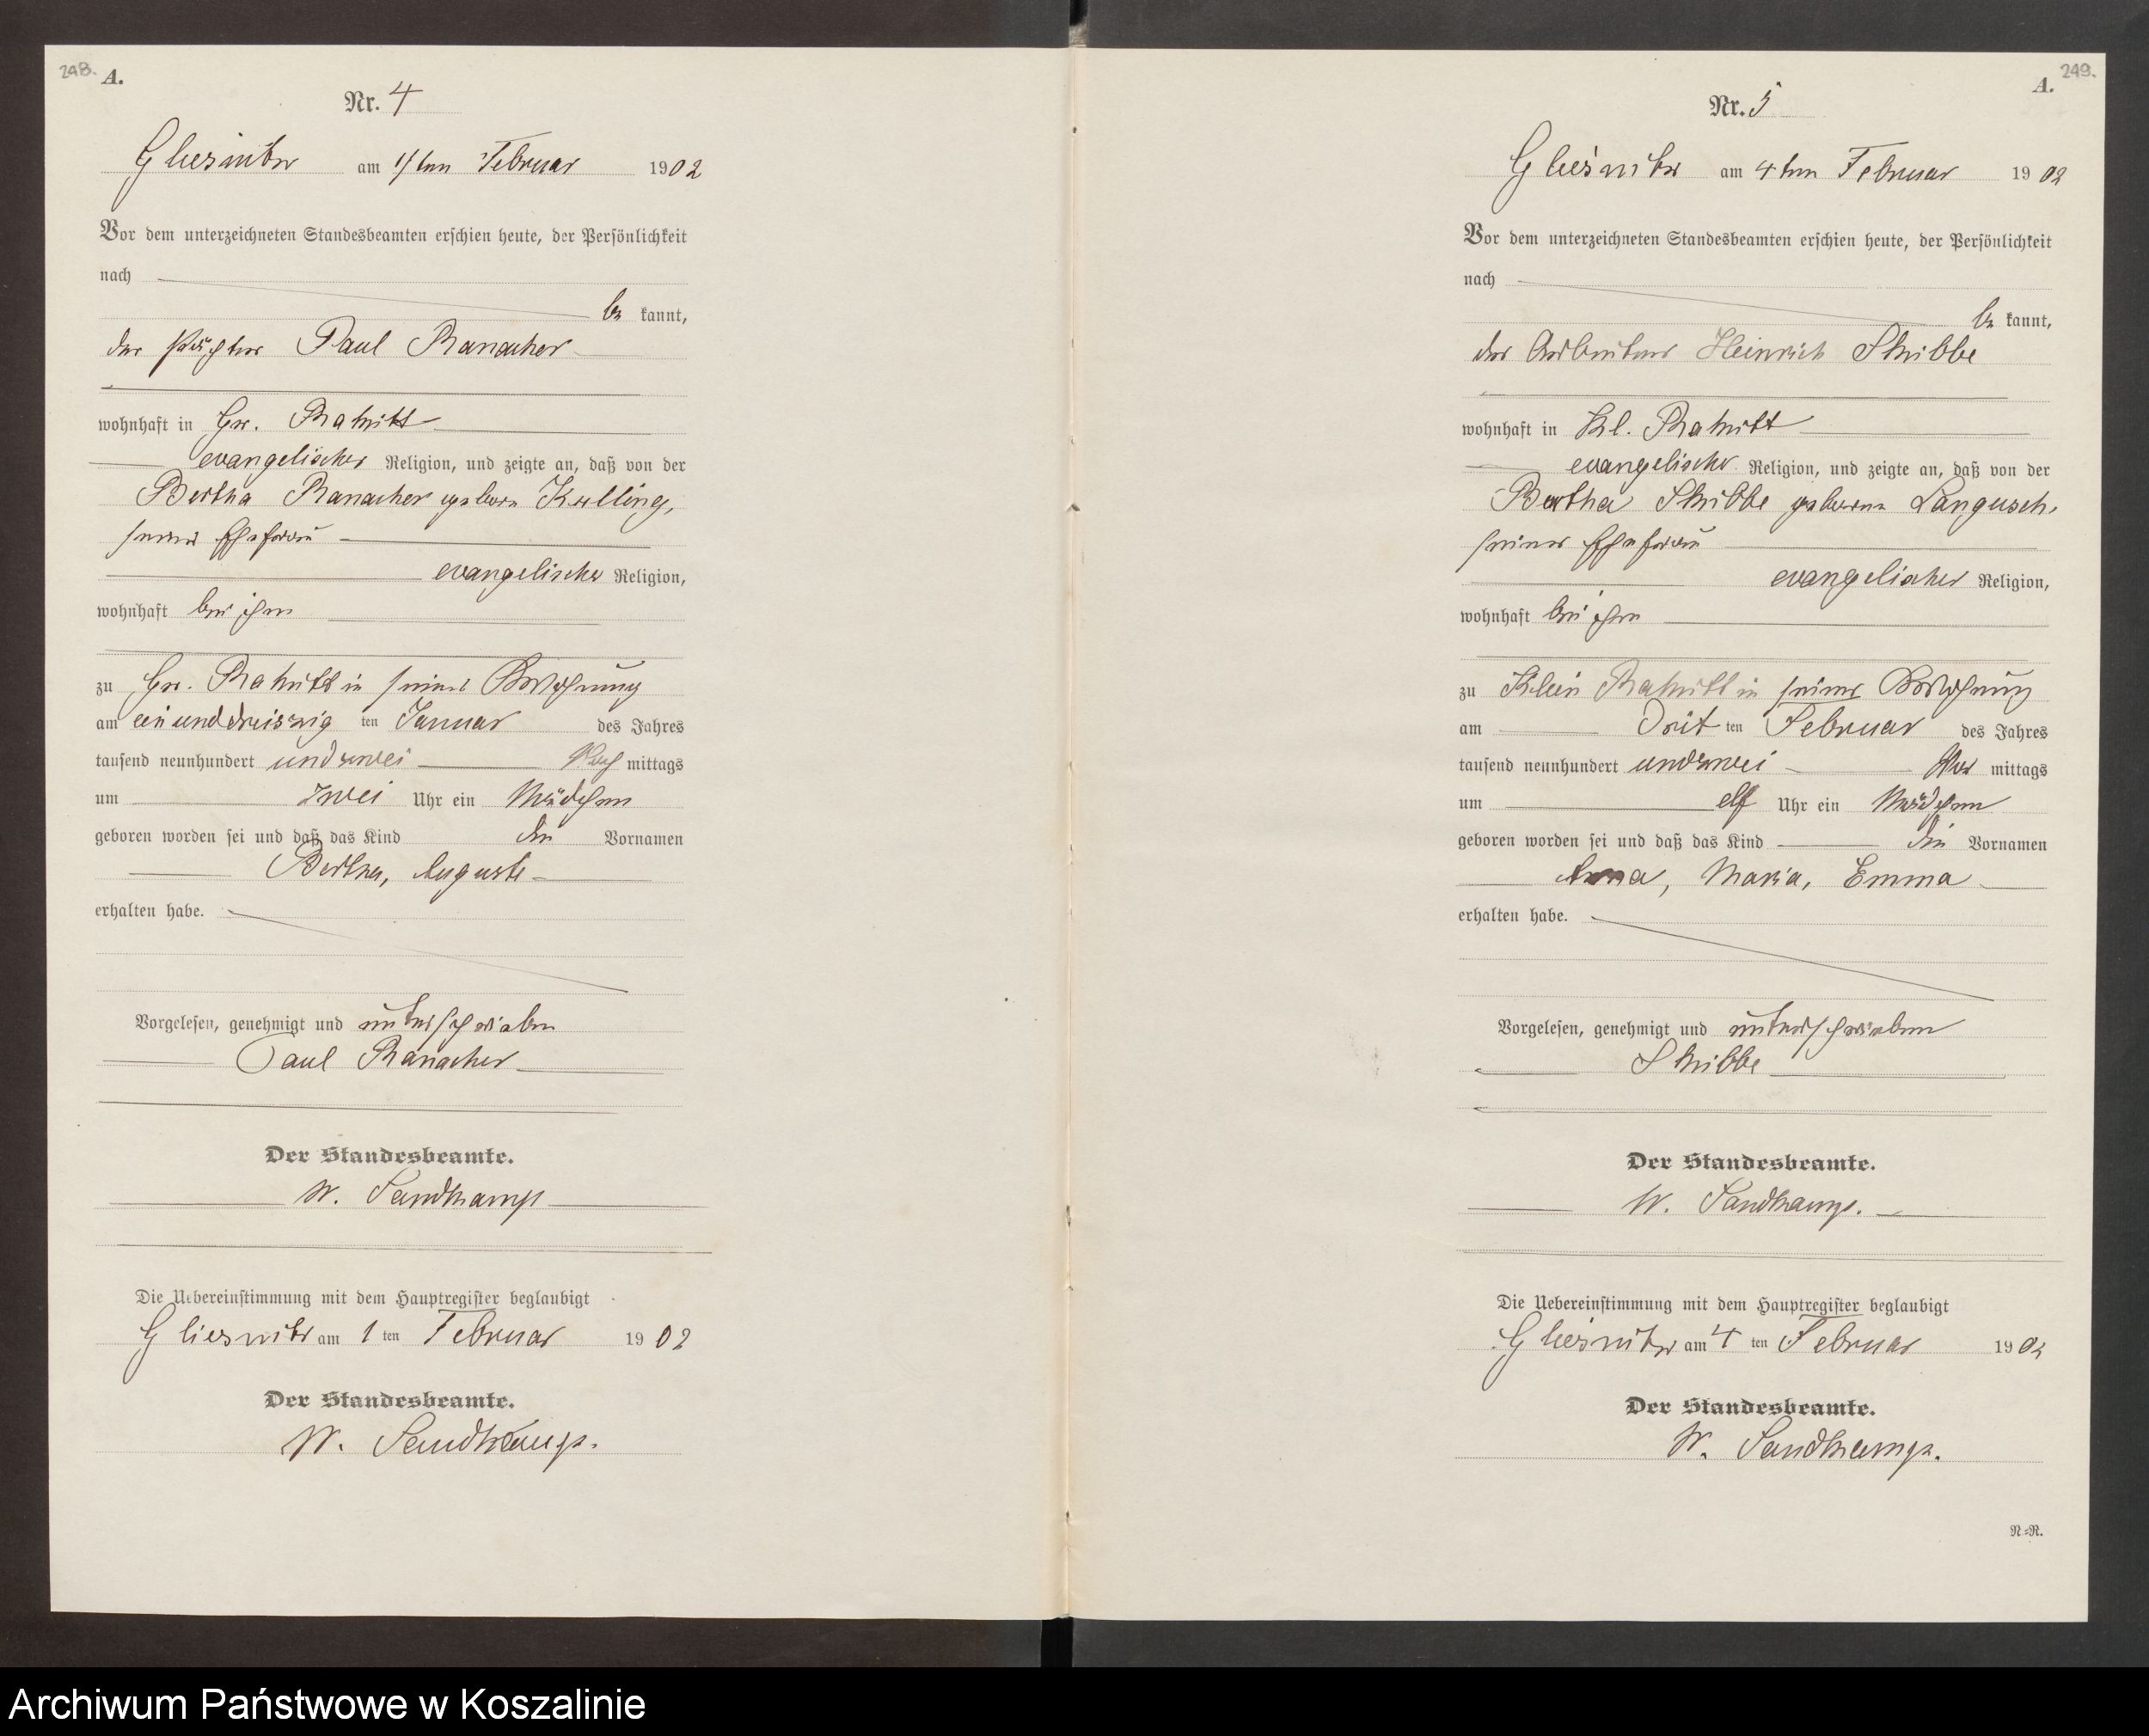 248.
A.
Nr. 4
Gliesnitz am 1ten Februar 1902
Vor dem unterzeichneten Standesbeamten erschien heute, der Persönlichkeit
nach
be kannt,
der Pächter Paul Ranacher
wohnhaft in Gr. Rakitt
evangelischer Religion, und zeigte an, daß von der
Bertha Ranacher geborn
seiner Ehefrau
evangelischer Religion,
wohnhaft bei ihm
zu Gr. Rakitt in seiner Wohnung
am einunddreiszig ten Januar des Jahres
tausend neunhundert undzwei Nach mittags
um zwei Uhr ein Mädchen
geboren worden sei und daß das Kind die Vornamen
Bertha, Auguste
erhalten habe.
Vorgelesen, genehmigt und unterschrieben
Paul Ranacher
Der Standesbeamte.
W. Sandkamp
Die Uebereinstimmung mit dem Hauptregister beglaubigt
Gliesnitz am 1 ten Februar 1902
Der Standesbeamte.
W. Sandkamp.
249.
A.
Nr. 5
Gliesnitz am 4ten Februar 1902
Vor dem unterzeichneten Standesbeamten erschien heute, der Persönlichkeit
nach
be kannt,
der Arbeiter Heinrich Skibbe
wohnhaft in Kl. Rakitt
evangelischer Religion, und zeigte an, daß von der
Bertha Skibbe geborene Langusch,
seiner Ehefrau
evangelischer Religion,
wohnhaft bei ihm
zu Klein Rakitt in seiner Wohnung
am Drit ten Februar des Jahres
tausend neunhundert undzwei Vor mittags
um elf Uhr ein Mädchen
geboren worden sei und daß das Kind die Vornamen
Anna, Maria, Emma
erhalten habe.
Vorgelesen, genehmigt und unterschrieben
Skibbe
Der Standesbeamte.
W. Sandkamp.
Die Uebereinstimmung mit dem Hauptregister beglaubigt
Gliesnitz am 4 ten Februar 1902
Der Standesbeamte.
W. Sandkamp.
N=R.
Archiwum Państwowe w Koszalinie